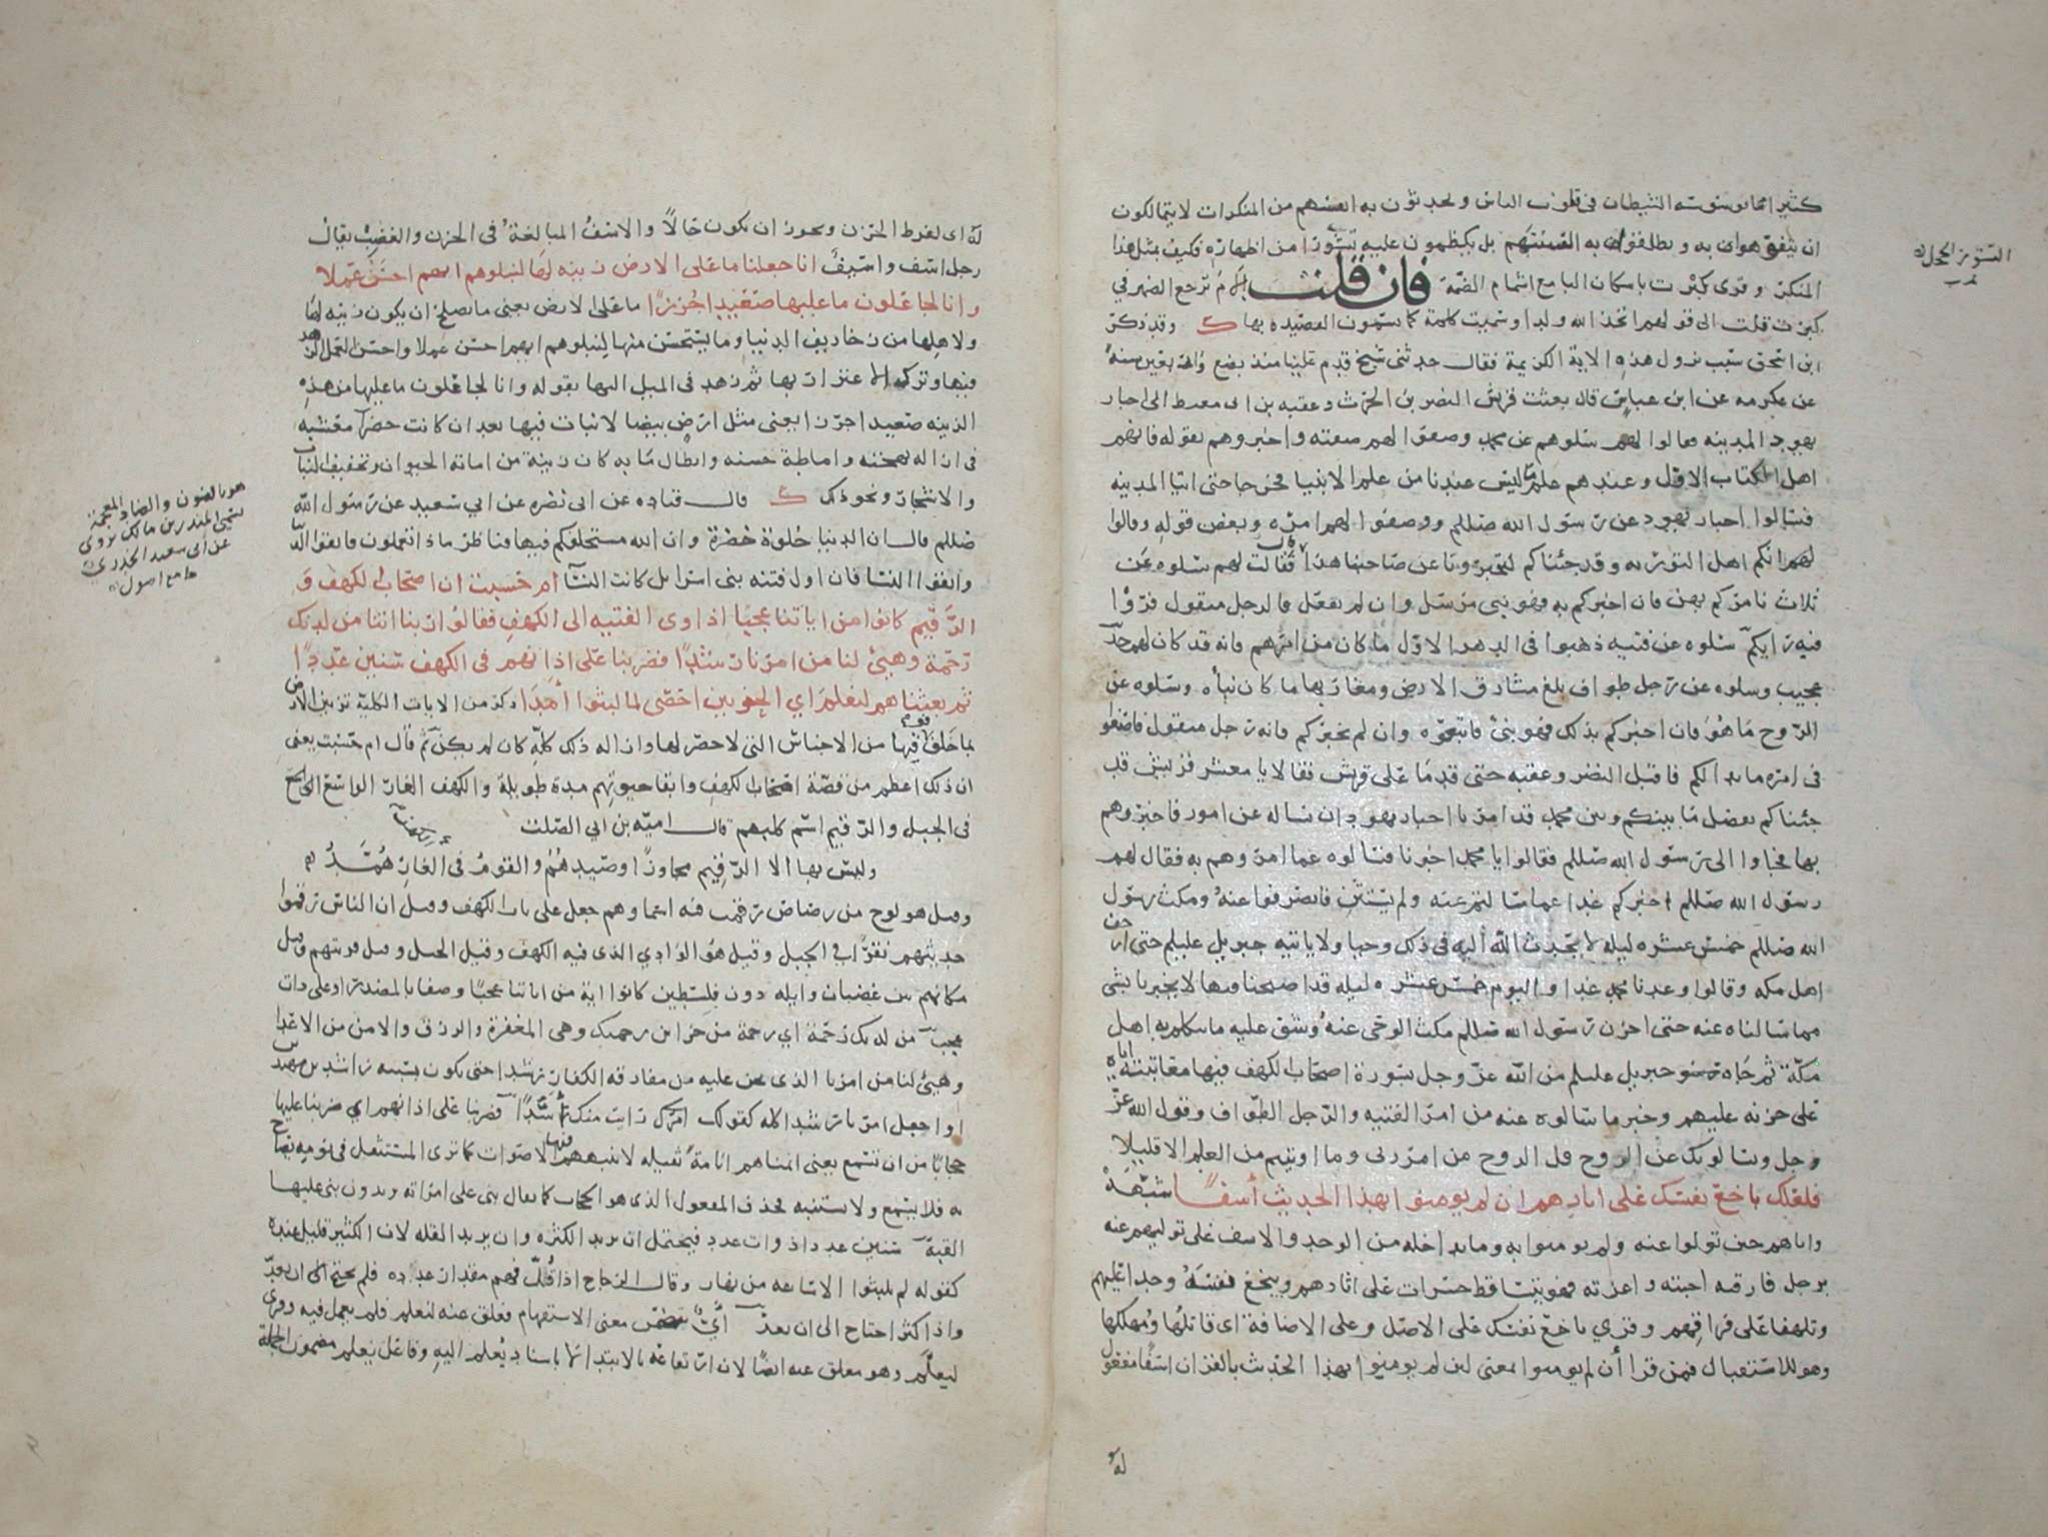 كثيرا مما يوسوسه الشيطان في قلوب الناس ويحدثون به انفسهم من المنكرات لا يتمالكون
ان يتفوهوا به ويطلقوا به السنتهم بل يكظمون عليه تشورا من اظهاره فكيف بمثل هذا
المنكر وقرى كبرت باسكان البا مع اشمام الضمة فان قلت الام ترجع الضمير في
كبرت قلت الى قولهم اتخذ الله ولدا وسميت كلمة كما يسمون القصيده بها ك وقد ذكر
ابن اسحق سبب نزول هذه الاية الكريمة فقال حدثنى شيخ قدم علينا منذ بضع واربعين سنة
عن عكرمه عن ابن عباس قال بعثت قريش النضر بن الحرث وعقبه بن ابى معيط الى احبار
يهود المدينه فقالوا لهم سلوهم عن محمد وصفوا لهم صفته واخبروهم بقوله فانهم
اهل الكتاب الاول وعندهم علم ما ليس عندنا من علم الانبيا فخرجا حتى اتيا المدينه
فسالوا احبار يهود عن رسول الله صللم ووصفوا لهم امره وبعض قوله وقالوا
لهم انكم اهل التوريه وقد جئناكم لتخبرونا عن صاحبنا هذا قال فقالت لهم سلوه عن
ثلاث نامركم بهن فان اخبركم به فهو نبى مرسل وان لم يفعل فالرجل متقول فروا
فيه رايكم سلوه عن فتيه ذهبوا في الدهر الاول ما كان من امرهم فانه قد كان لهم حديث
عجيب وسلوه عن رجل طواف بلغ مشارق الارض ومغاربها ما كان نبأه وسلوه عن
الروح ما هو فان اخبركم بذلك فهو نبى فاتبعوه وان لم يخبركم فانه رجل متقول فاصنعوا
في امره ما بدا لكم فاقبل النضر وعقبه حتى قدما على قريش فقالا يا معشر قريش قد
جئناكم بفصل ما بينكم وبين محمد قد امرنا احبار يهود ان نساله عن امور فاخبروهم
بها فجاوا الى رسول الله صللم فقالوا يا محمد اخبرنا فسالوه عما امروهم به فقال لهم
رسول الله صللم اخبركم غدا عما سالتم عنه ولم يستثن فانصرفوا عنه ومكث رسول
الله صللم خمس عشره ليله لا يحدث الله اليه في ذلك وحيا ولا ياتيه جبريل عليلم حتى ارجف
اهل مكه وقالوا وعدنا محمد غدا واليوم خمس عشره ليله قد اصبحنا فيها لا يخبرنا بشى
مما سالناه عنه حتى احزن رسول الله صللم مكث الوحى عنه وشق عليه ما يتكلم به اهل
مكة ثم جاه جبريل عليلم من الله عز وجل بسورة اصحاب الكهف فيها معاتبته اياه
على حزنه عليهم وخبر ما سالوه عنه من امر الفتيه والرجل الطواف وقول الله عز
وجل ويسالونك عن الروح قل الروح من امر ربى وما اوتيتم من العلم الا قليلا
فلعلك باخع نفسك على اثارهم ان لم يومنوا بهذا الحديث أسفًا شبهه
واياهم حين تولوا عنه ولم يومنوا به وما يداخله من الوجد والاسف على توليهم عنه
برجل فارقه احبته واعزته فهو يتساقط حسرات على اثارهم ويبخع نفسه وجدا عليهم
وتلهفا على فراقهم وقرى باخع نفسك على الاصل وعلى الاضافة اى قاتلها ومهلكها
وهو للاستقبال فمن قرا أن لم يومنوا بمعنى لئن لم يومنوا بهذا الحديث بالقران اسفا مفعول
له
التشور الخجل
مغرب
له اى لفرط الحزن ويجوز ان يكون حالاً والاسف المبالغة في الحزن والغضب يقال
رجل اسف واسيف انا جعلنا ما على الارض زينه لها لنبلوهم ايهم احسن عملا
وانا لجاعلون ما عليها صعيدا جرزا ما على الارض يعنى ما يصلح ان يكون زينه لها
ولاهلها من زخاريف الدنيا وما يستحسن منها لنبلوهم ايهم احسن عملا وحسن العمل الزهد
فيها وترك الاغترار بها ثم زهد في الميل اليها بقوله وانا لجاعلون ما عليها من هذه
الزينه صعيدا جرزا يعنى مثل ارض بيضا لا نبات فيها بعد ان كانت خضرآ معشبه
في ازاله بهجته واماطة حسنه وابطال ما به كان زينة من اماته الحيوان وتجفيف النبات
والاشجار ونحو ذلك ك قال قتاده عن ابى نضره عن ابي سعيد عن رسول الله
صللم قال ان الدنيا حلوة خضرة وان الله مستخلفكم فيها فناظر ماذا تعملون فاتقوا الدنيا
واتقوا النسا فان اول فتنه بنى اسرايل كانت النسآ ام حسبت ان اصحاب الكهف و
الرقيم كانوا من اياتنا عجبا اذ اوى الفتيه الى الكهف فقالوا ربنا اتنا من لدنك
رحمة وهيئ لنا من امرنا رشدا فضربنا على اذانهم في الكهف سنين عددا
ثم بعثناهم لنعلم اي الحزبين احصى لما لبثوا أمدا ذكر من الايات الكلية تزيين الارض
بما خلق فوقها من الاجناس التى لا حصر لها وازاله ذلك كله كان لم يكن ثم قال ام حسبت يعنى
ان ذلك اعظم من قصة اصحاب الكهف وابقا حيوتهم مدة طويلة والكهف الغار الواسع
في الجبل والرقيم اسم كلبهم قال اميه بن ابي الصلت
وليس بها الا الرقيم مجاورًا وصيدهم والقوم في الغار همد
وقيل هو لوح من رصاص رقمت فيه اسماوهم جعل على باب الكهف وقيل ان الناس رقموا
حديثهم نقرا في الجبل وقيل هو الوادي الذى فيه الكهف وقيل الجبل وقيل قريتهم وقيل
مكانهم بين غضبان وايله دون فلسطين كانوا اية من اياتنا عجبا وصفا بالمصدر او على ذات
عجب من لدنك رحمة اي رحمة من خزاين رحمتك وهى المغفرة والرزق والامن من الاعدا
وهيئ لنا من امرنا الذى نحن عليه من مفارقه الكفار رشدا حتى نكون بسببه راشدين مهتدين
او اجعل امرنا رشدا كله كقولك رايت منك أسدًا فضربنا على اذانهم اي ضربنا عليها
حجابا من ان تسمع يعنى انمناهم انامة ثقيله لا تنبههم فيها الاصوات كما ترى المستثقل في نومه يصاح
به فلا يسمع ولا يستنبه فحذف المفعول الذى هو الحجاب كما يقال بنى على امراته يريدون بنى عليها
القبة سنين عددا ذوات عدد فيحتمل ان يريد الكثره وان يريد القله لان الكثير قليل عنده
كقوله لم يلبثوا الا ساعه من نهار وقال الزجاج اذا قل فهم مقدار عدده فلم يحتج الى ان يعد
واذا كثر احتاج الى ان يعد أيّ يتضمن معنى الاستفهام فعلق عنه لنعلم فلم يعمل فيه وقرى
ليعلم وهو معلق عنه ايضا لان ارتفاعه بالابتدا لا باسناد يعلم اليه وفاعل يعلم مضمون الجملة
هو بالنون والضاد المعجمة
اسمه المنذر بن مالك روى
عن ابى سعيد الخدرى
جامع اصول